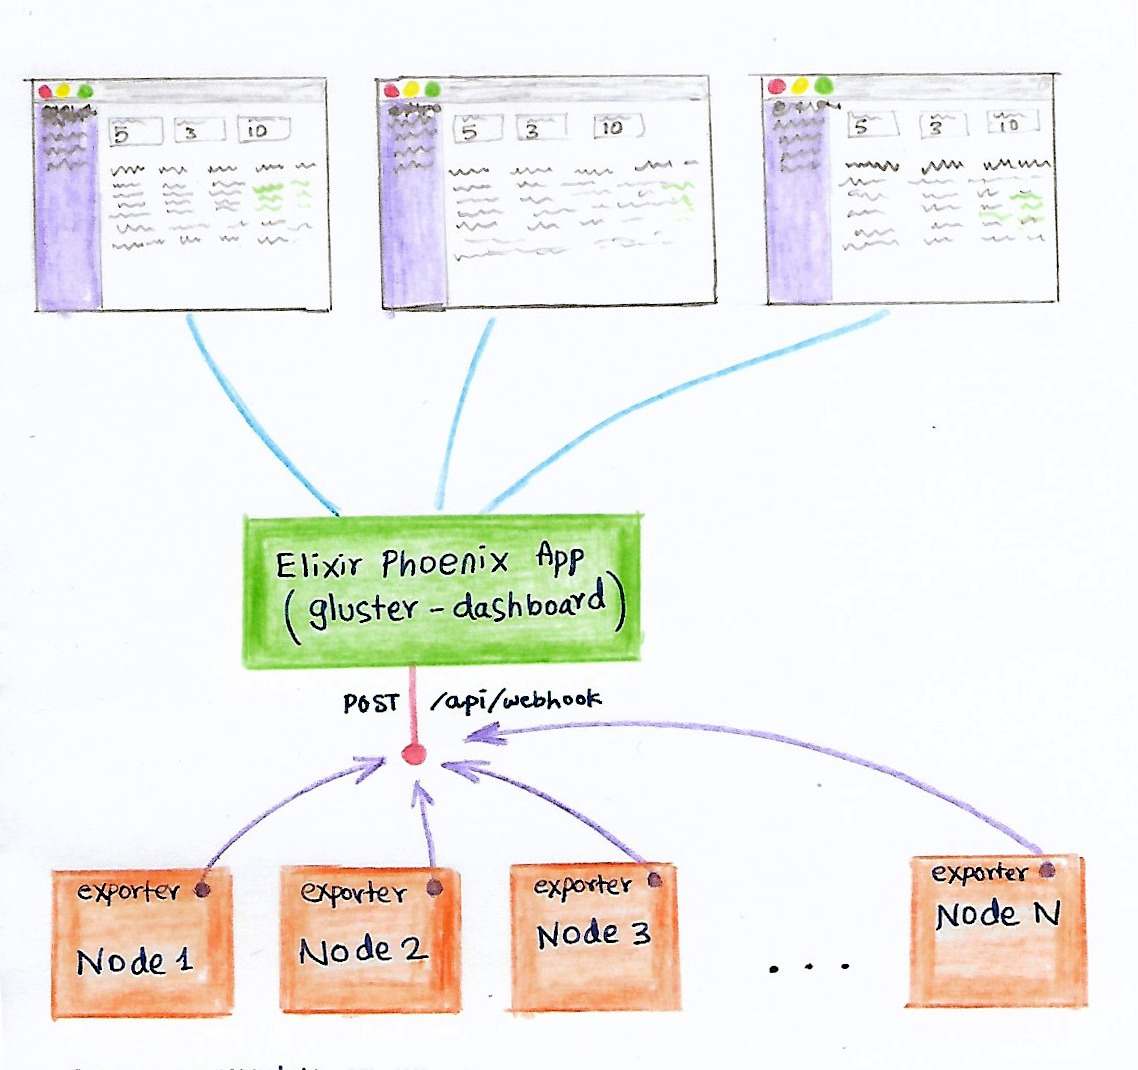 5 3 10
5 3 10
5 3 10
Elixir Phoenix App
(gluster-dashboard)
POST /api/webhook
exporter
Node 1
exporter
Node 2
exporter
Node 3
...
exporter
Node N